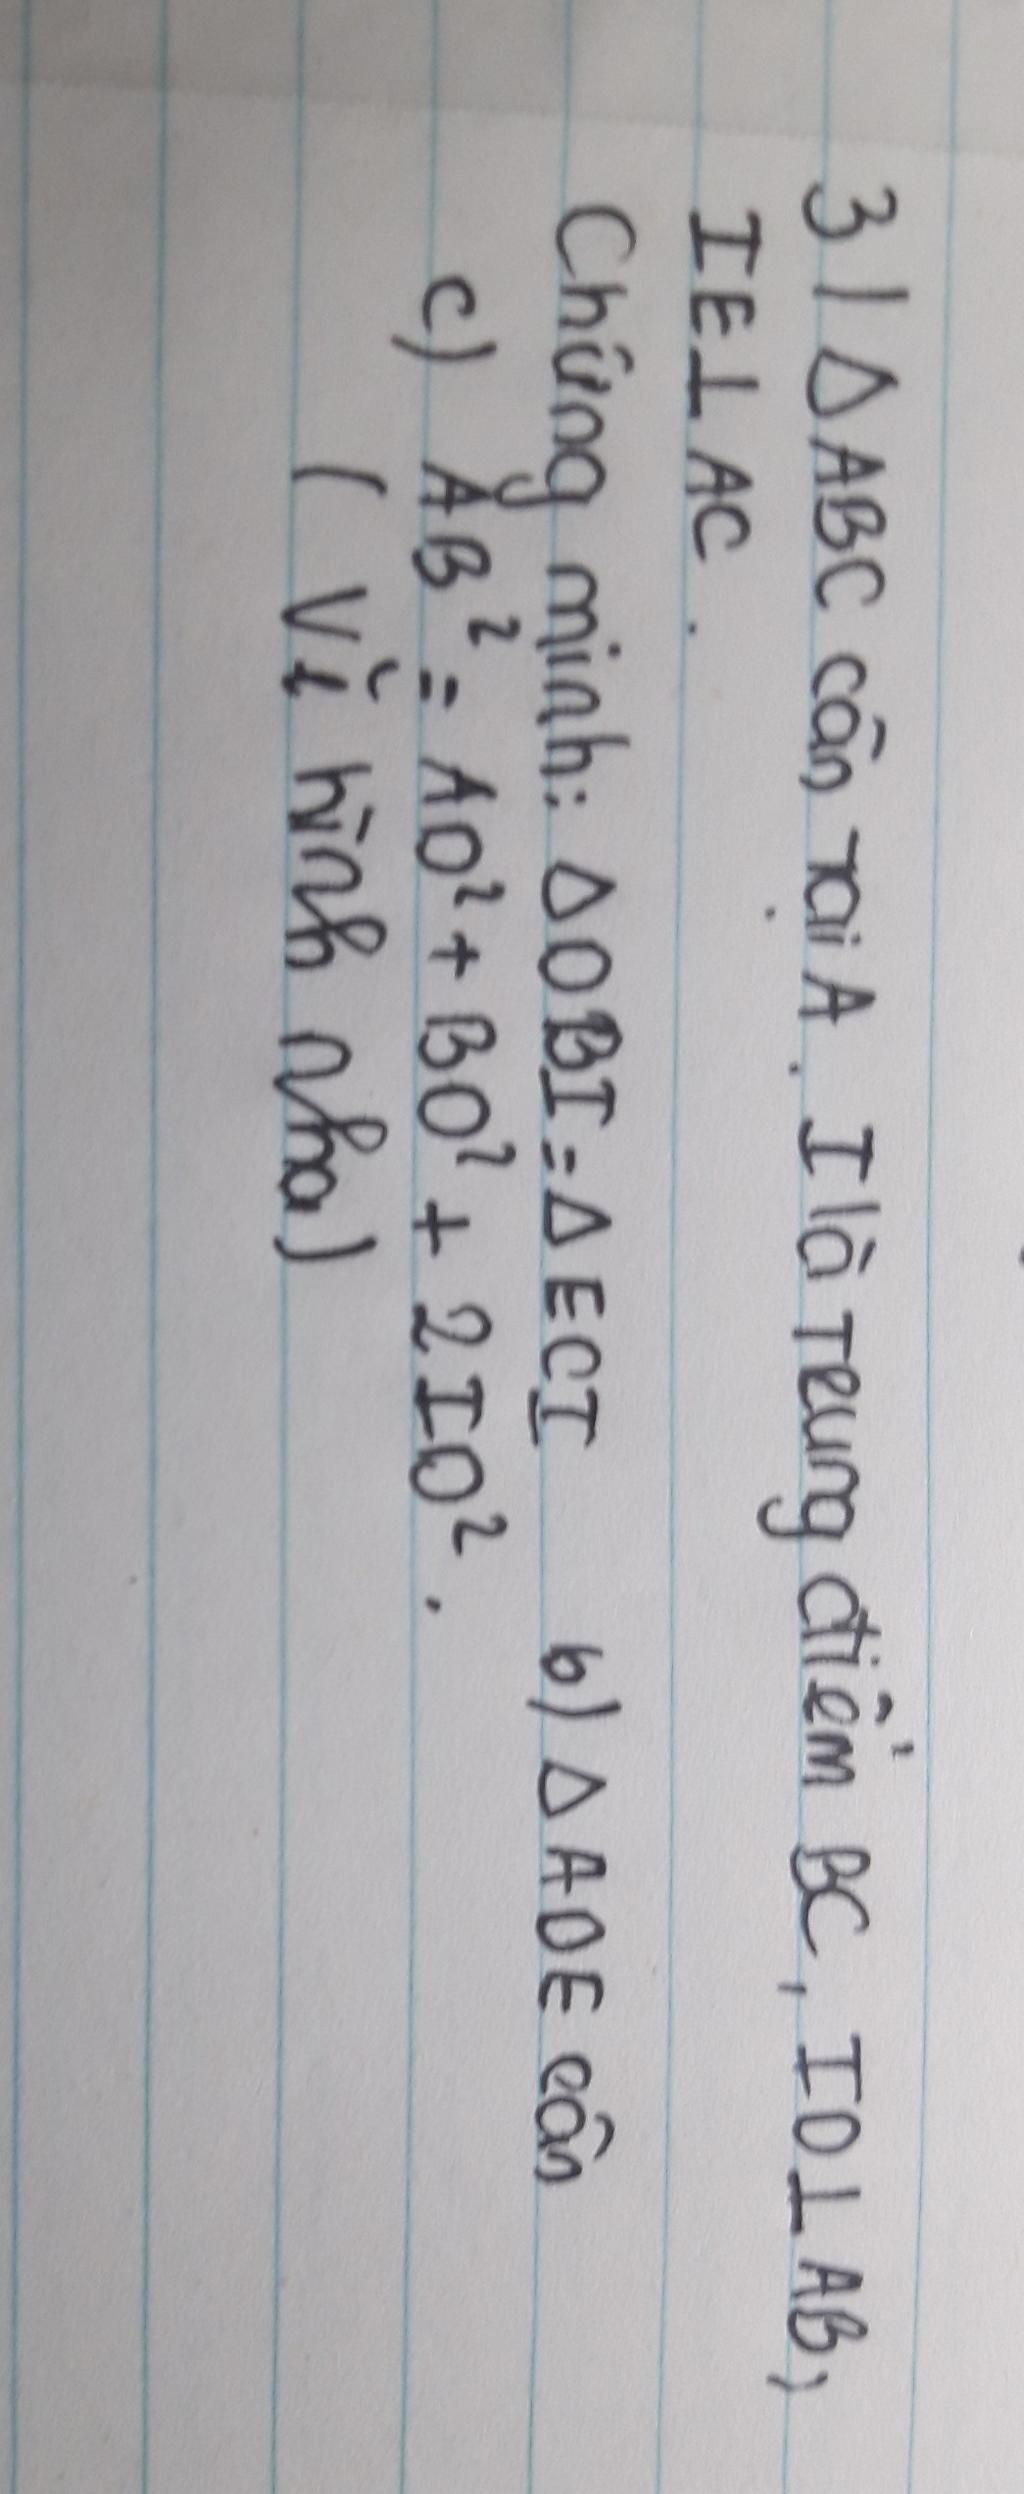 3) ΔABC cân tại A. I là trung điểm BC, IO⊥AB,
IE⊥AC.
Chứng minh: ΔOBI=ΔECI b) ΔAOE cân
c) AB²=AO²+BO²+2IO².
(Vẽ hình nha)